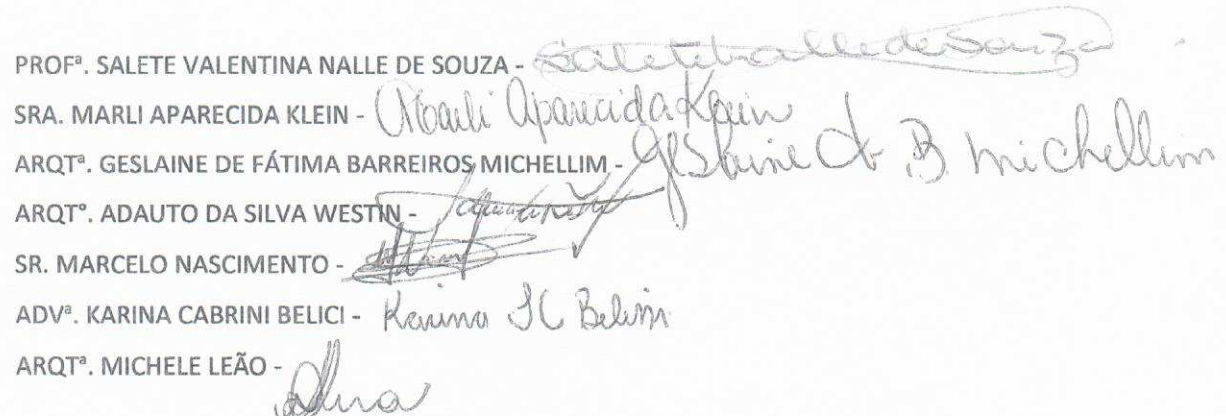 PROFª. SALETE VALENTINA NALLE DE SOUZA - Salete Nalle de Souza
SRA. MARLI APARECIDA KLEIN - Marli Aparecida Klein
ARQTª. GESLAINE DE FÁTIMA BARREIROS MICHELLIM - Geslaine de F. B. Michellim
ARQTº. ADAUTO DA SILVA WESTIN -
SR. MARCELO NASCIMENTO -
ADVª. KARINA CABRINI BELICI - Karina
ARQTª. MICHELE LEÃO -